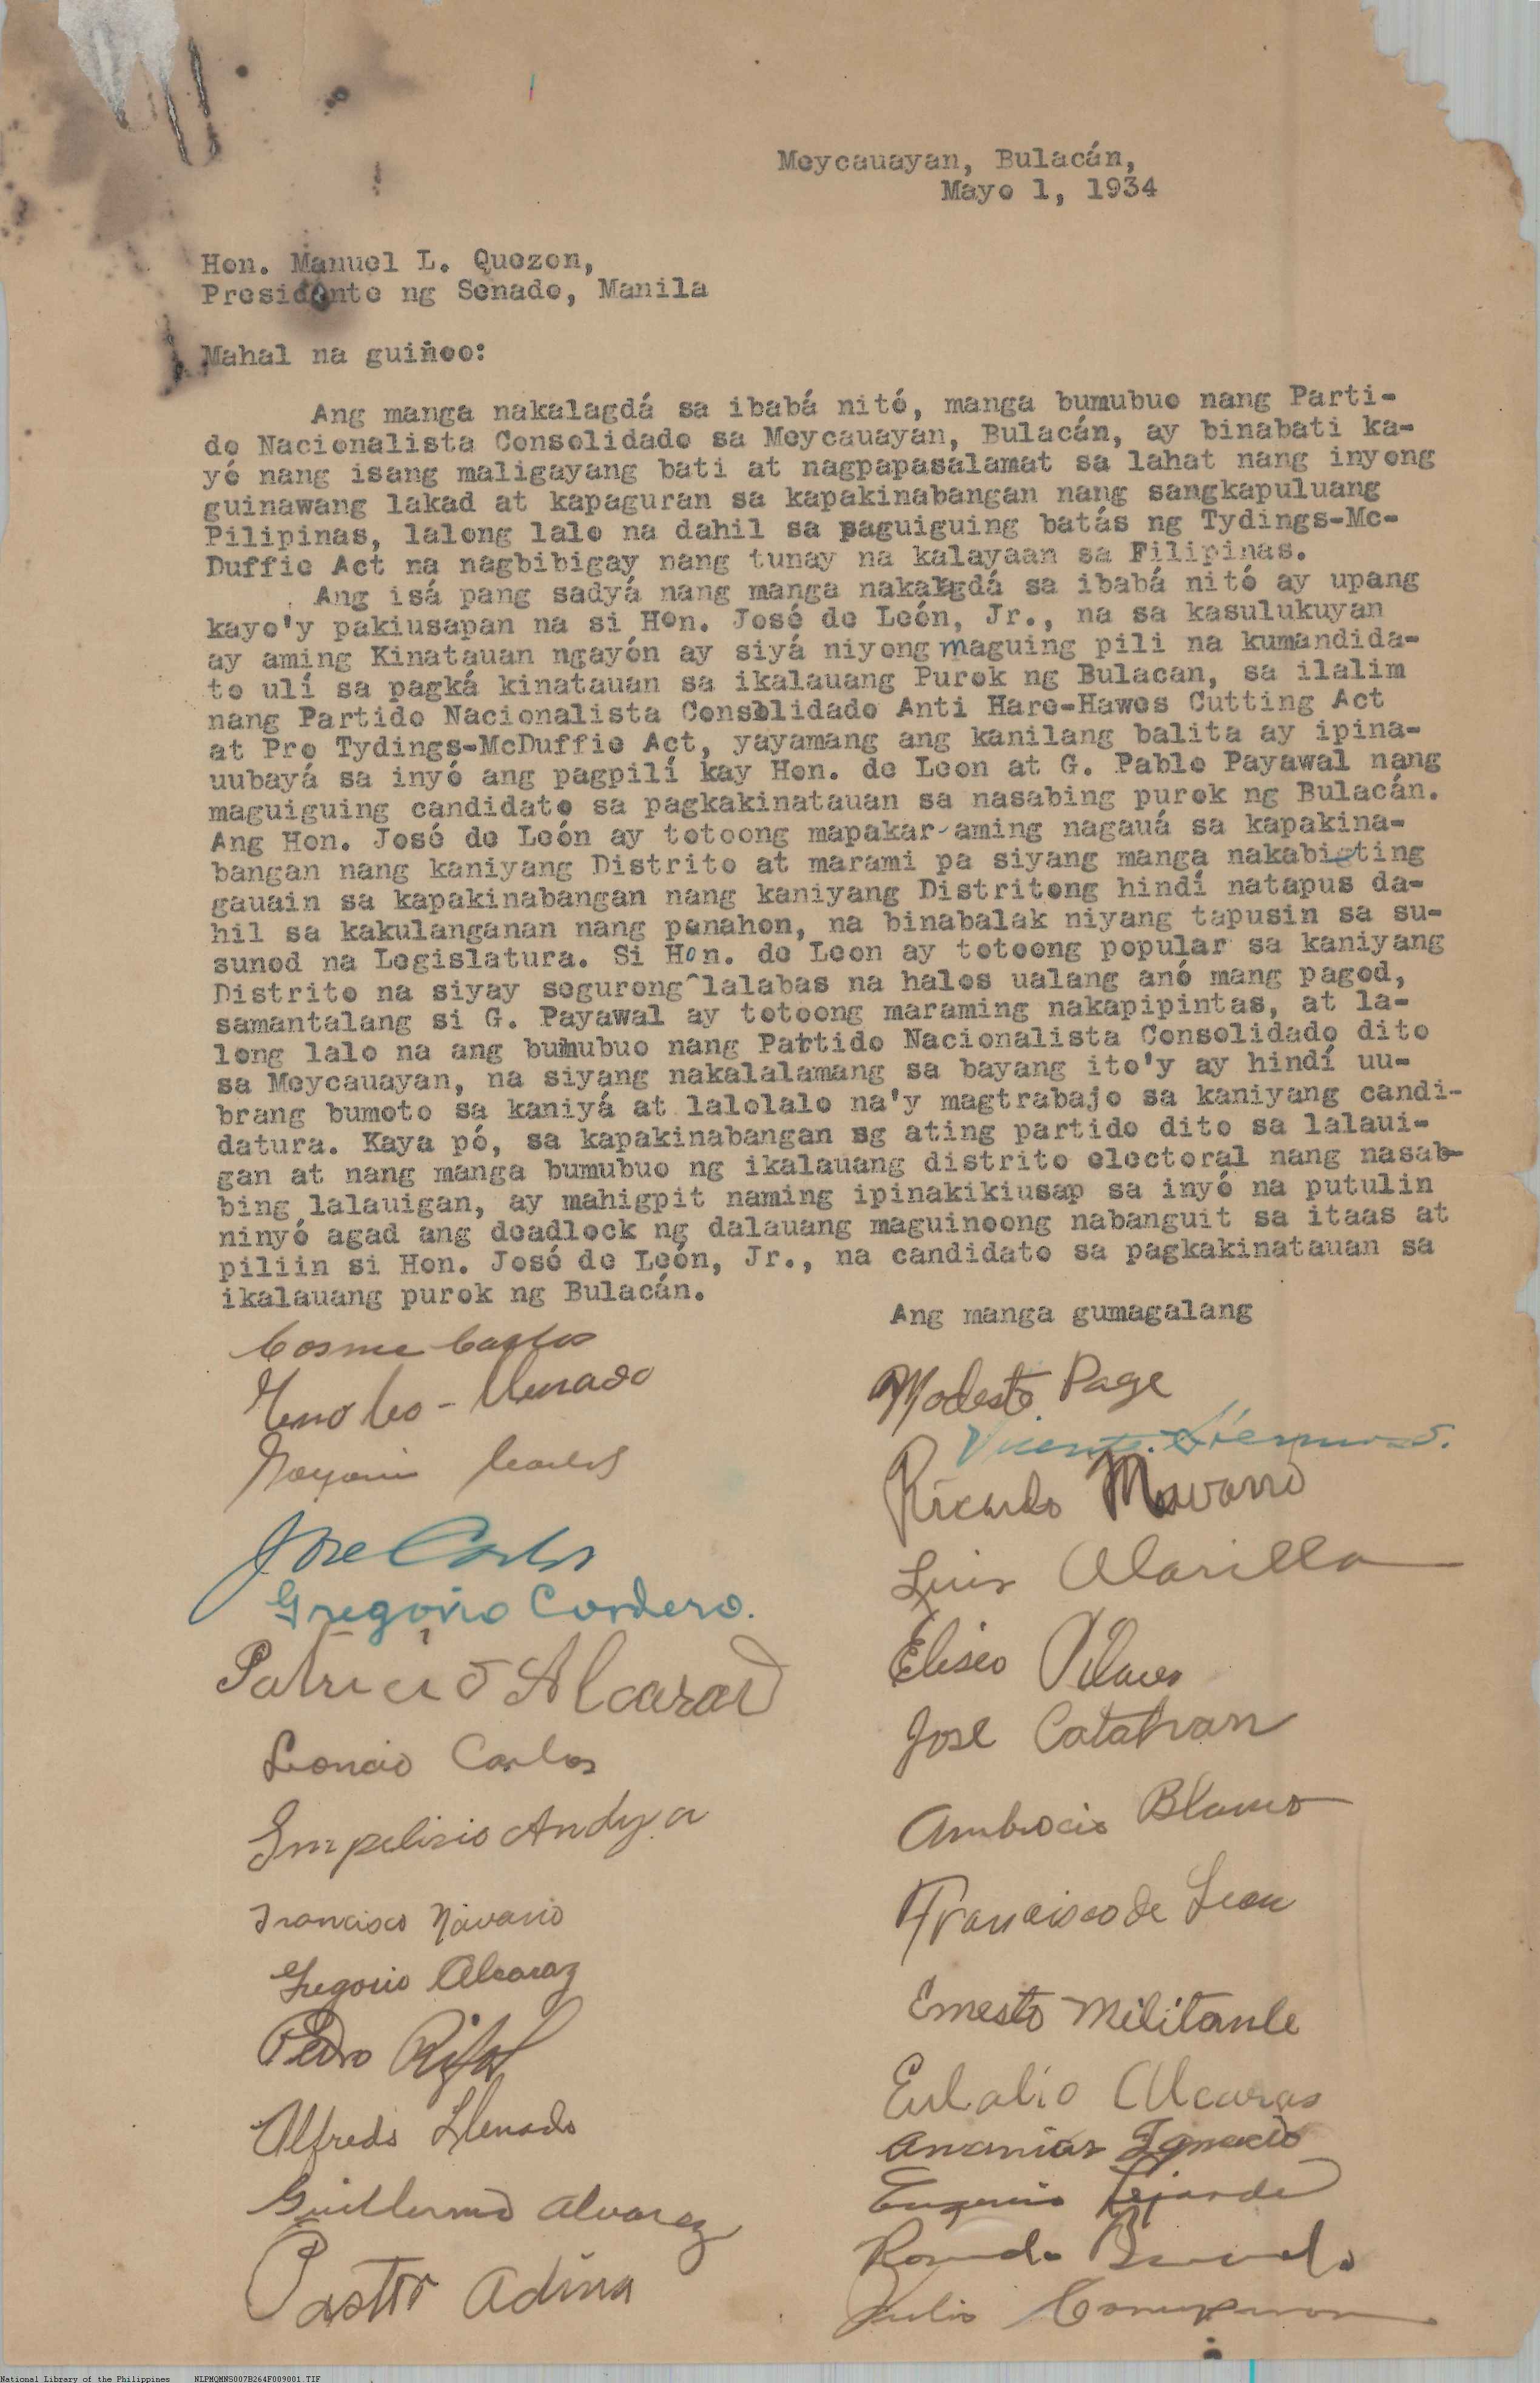 Meycauayan, Bulacán,
Mayo 1, 1934
Hon. Manuel L. Quezon,
Presidente ng Senado, Manila
Mahal na guiñoo:
Ang manga nakalagdá sa ibabá nitó, manga bumubuo nang Parti-
do Nacionalista Consolidado sa Meycauayan, Bulacán, ay binabati ka-
yó nang isang maligayang bati at nagpapasalamat sa lahat nang inyong
guinawang lakad at kapaguran sa kapakinabangan nang sangkapuluang
Pilipinas, lalong lalo na dahil sa paguiguing batás ng Tydings-Mc-
Duffie Act na nagbibigay nang tunay na kalayaan sa Filipinas.
Ang isá pang sadyá nang manga nakalagdá sa ibabá nitó ay upang
kayo'y pakiusapan na si Hon. José de León, Jr., na sa kasulukuyan
ay aming Kinatauan ngayón ay siyá niyong maguing pili na kumandida-
to ulí sa pagká kinatauan sa ikalauang Purok ng Bulacan, sa ilalim
nang Partido Nacionalista Consolidado Anti Hare-Hawes Cutting Act
at Pro Tydings-McDuffie Act, yayamang ang kanilang balita ay ipina-
uubayá sa inyó ang pagpilí kay Hon. de Leon at G. Pablo Payawal nang
maguiguing candidato sa pagkakinatauan sa nasabing purok ng Bulacán.
Ang Hon. José de León ay totoong mapakar-aming nagauá sa kapakina-
bangan nang kaniyang Distrito at marami pa siyang manga nakabinting
gauain sa kapakinabangan nang kaniyang Distritong hindí natapus da-
hil sa kakulanganan nang panahon, na binabalak niyang tapusin sa su-
sunod na Legislatura. Si Hon. de Leon ay totoong popular sa kaniyang
Distrito na siyay segurong lalabas na halos ualang anó mang pagod,
samantalang si G. Payawal ay totoong maraming nakapipintas, at la-
long lalo na ang bumubuo nang Partido Nacionalista Consolidado dito
sa Meycauayan, na siyang nakalalamang sa bayang ito'y ay hindí uu-
brang bumoto sa kaniyá at lalolalo na'y magtrabajo sa kaniyang candi-
datura. Kaya pó, sa kapakinabangan ng ating partido dito sa lalaui-
gan at nang manga bumubuo ng ikalauang distrito electoral nang nasab-
bing lalauigan, ay mahigpit naming ipinakikiusap sa inyó na putulin
ninyó agad ang deadlock ng dalauang maguinoong nabanguit sa itaas at
piliin si Hon. José de León, Jr., na candidato sa pagkakinatauan sa
ikalauang purok ng Bulacán.
Ang manga gumagalang
Cosme Carlos
Modesto Page
Llenado
Vicente
Carlos
Ricardo Navarro
Jose Carlos
Luis Alarilla
Gregorio Cordero.
Eliseo
Patricio Alcaraz
Jose Catahan
Leoncio Carlos
Ambrocio Blanco
Francisco de Leon
Francisco Navarro
Gregorio Alcaraz
Ernesto Militante
Pedro
Eulalio Alcaras
Alfredo Llenado
Ananias Ignacio
Guillermo Alvarez
Eugenio
Pastor Adina
Julio
National Library of the Philippines NLPMQMNS007B264F009001.TIF